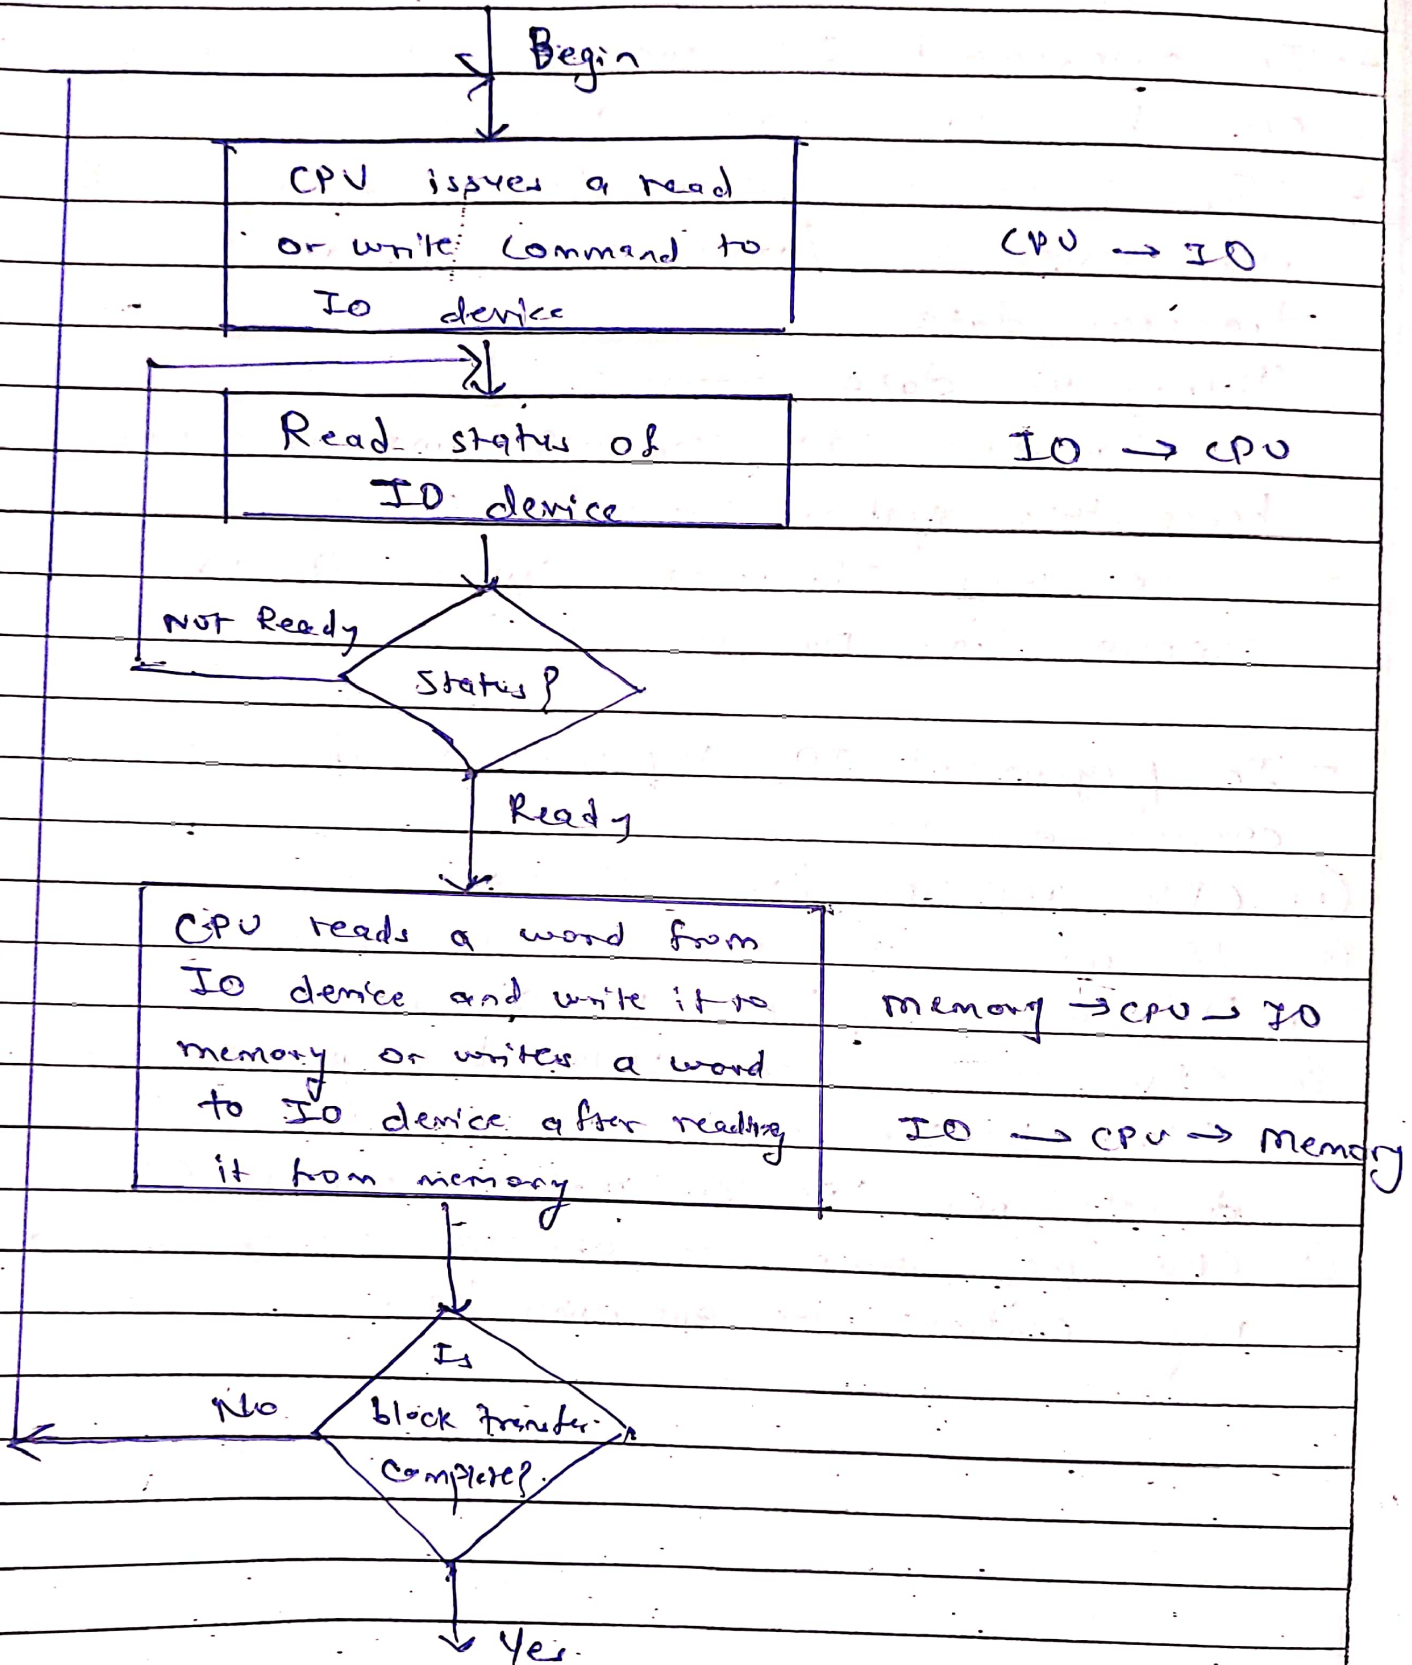 Begin
CPU issues a read
or write command to
IO device
CPU → IO
Read status of
IO device
IO → CPU
NOT Ready
Status?
Ready
CPU reads a word from
IO device and write it to
memory or writes a word
to IO device after reading
it from memory
memory → CPU → IO
IO → CPU → Memory
Is
block transfer
complete?
No
Yes.